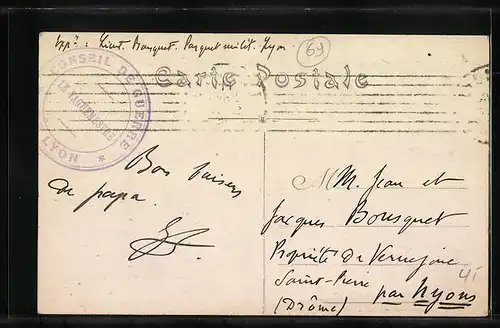 Expr: Lieut. Bousquet. Parquet milit. Lyon
69
Carte Postale
CONSEIL DE GUERRE
LYON *
Bons baisers
de papa.
MM. Jean et
Jacques Bousquet
Propriété de
Saint-Pierre par Nyons
(Drôme)